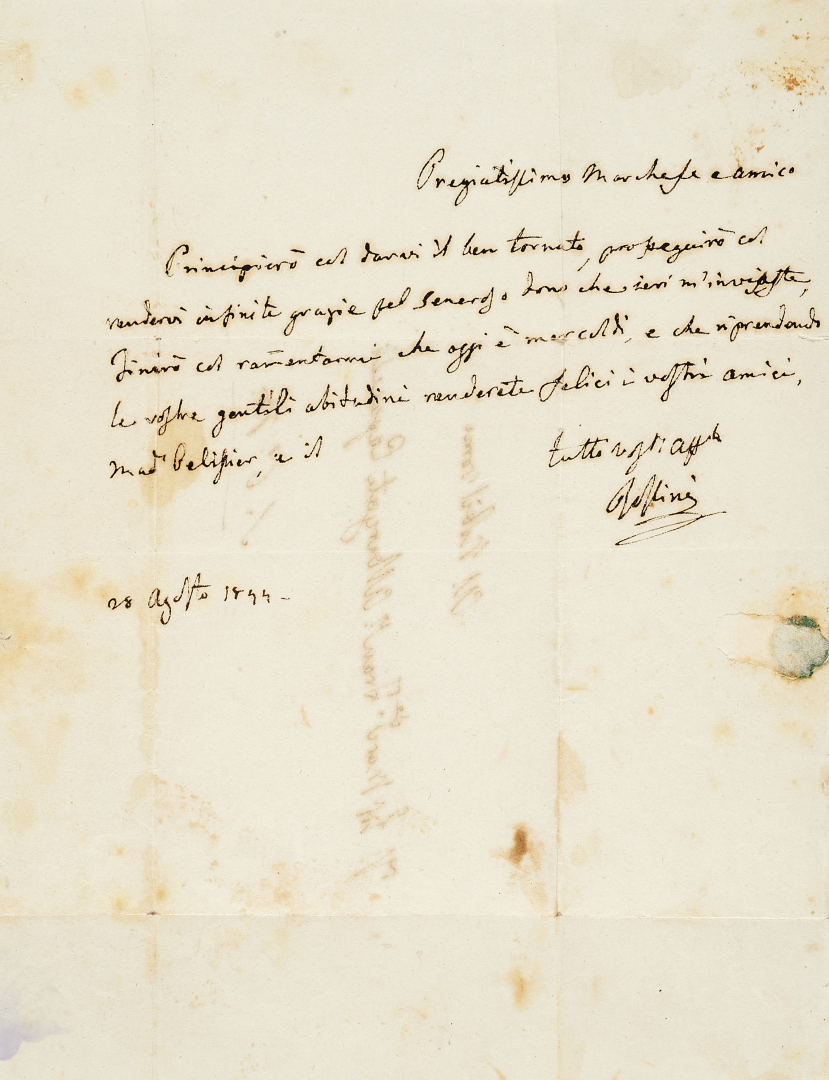 Pregiatissimo Marchese e amico
Principierò col darvi il ben tornato, proseguirò col
rendervi infinite grazie pel generoso dono che ieri m'inviaste,
finirò col ramentarmi che oggi è mercoldì, e che riprendendo
le vostre gentili abitudini renderete felici i vostri amici,
Mad. Pelissier, e il
tutto vostro Aff.
Rossini
28 Agosto 1844 -